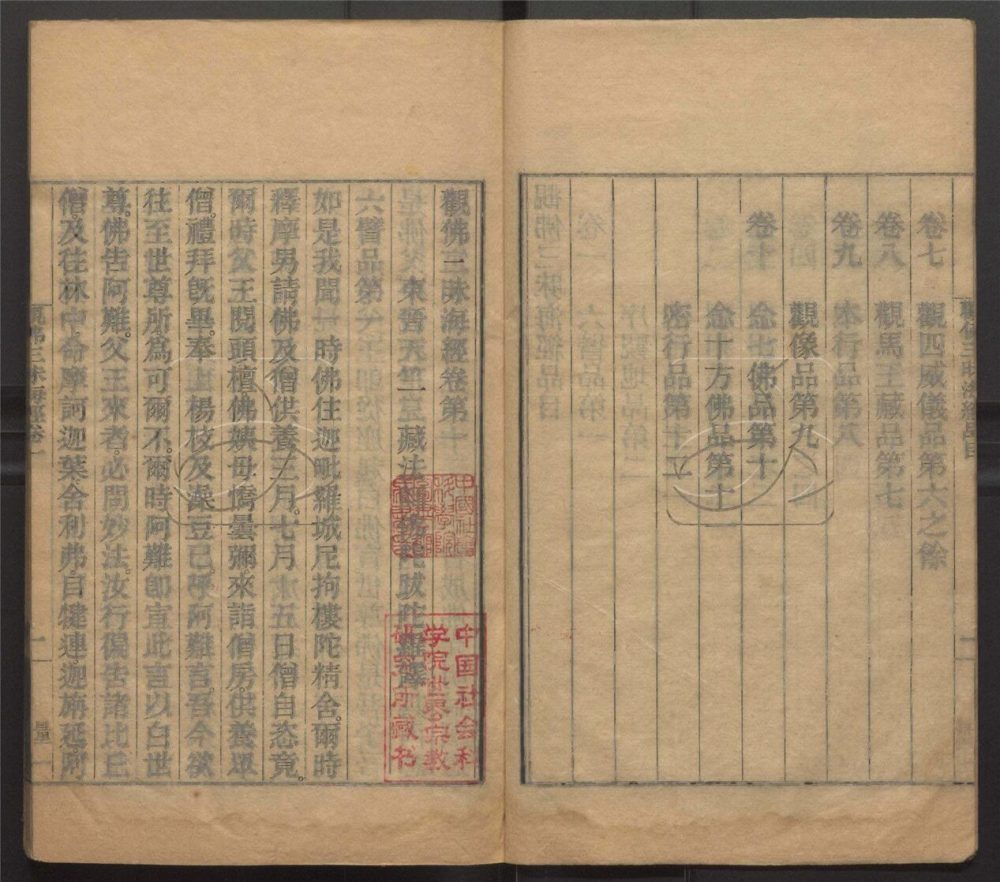 卷七
觀四威儀品第六之餘
卷八
觀馬王藏品第七
本行品第八
卷九
觀像品第九
卷十
念七佛品第十
念十方佛品第十一
密行品第十二
觀佛三昧海經品目
觀佛三昧海經卷第一
東晉天竺三藏法師佛陀跋陀羅譯
六譬品第一
如是我聞一時佛住迦毗羅城尼拘樓陀精舍爾時
釋摩男請佛及僧供養三月七月十五日僧自恣竟
爾時父王閱頭檀佛姨母憍曇彌來詣僧房供養眾
僧禮拜既畢奉上楊枝及澡豆已呼阿難言吾今欲
往至世尊所爲可爾不爾時阿難即宣此言以白世
尊佛告阿難父王來者必問妙法汝行徧告諸比丘
僧及往林中命摩訶迦葉舍利弗目犍連迦旃延阿
觀佛三昧海經卷一
一
量一
中国社会科
学院世界宗教
研究所藏书